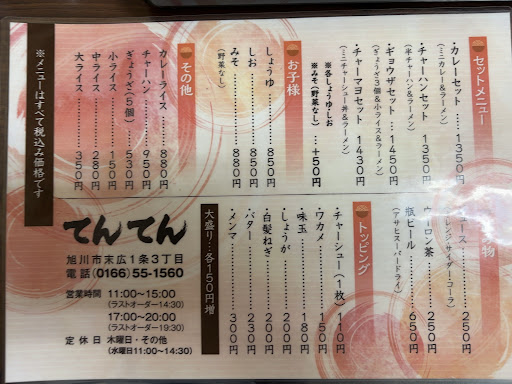 セットメニュー
・カレーセット……1350円
（ミニカレー＆ラーメン）
・チャーハンセット 1350円
（半チャーハン＆ラーメン）
・ギョウザセット…1450円
（ぎょうざ3個＆小ライス＆ラーメン）
・チャーマヨセット 1430円
（ミニチャーシュー丼＆ラーメン）
※各しょうゆ・しお
※みそ（野菜なし）…＋50円
お子様
・しょうゆ………850円
・しお……………850円
・みそ……………880円
（野菜なし）
その他
・カレーライス……880円
・チャーハン………950円
・ぎょうざ（5個）…530円
・小ライス…………150円
・中ライス…………280円
・大ライス…………350円
※メニューはすべて税込み価格です
物
ュース…………250円
レンジ・サイダー・コーラ）
・ウーロン茶………250円
・瓶ビール…………650円
（アサヒスーパードライ）
トッピング
・チャーシュー（1枚）110円
・ワカメ……………150円
・味玉………………180円
・しょうが…………200円
・白髪ねぎ…………200円
・バター……………230円
・メンマ……………300円
大盛り…各150円増
てんてん
旭川市末広1条3丁目
電話（0166）55-1560
営業時間 11:00〜15:00
（ラストオーダー14:30）
17:00〜20:00
（ラストオーダー19:30）
定休日 木曜日・その他
（水曜日11:00〜14:30）